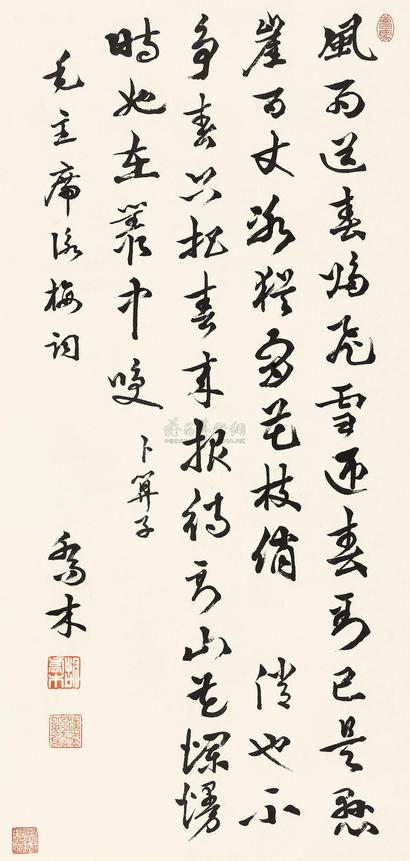 風雨送春歸飛雪迎春到已是懸
崖百丈冰猶有花枝俏 俏也不
争春只把春來報待到山花爛熳
時她在叢中咲 卜算子
毛主席詠梅詞
喬木